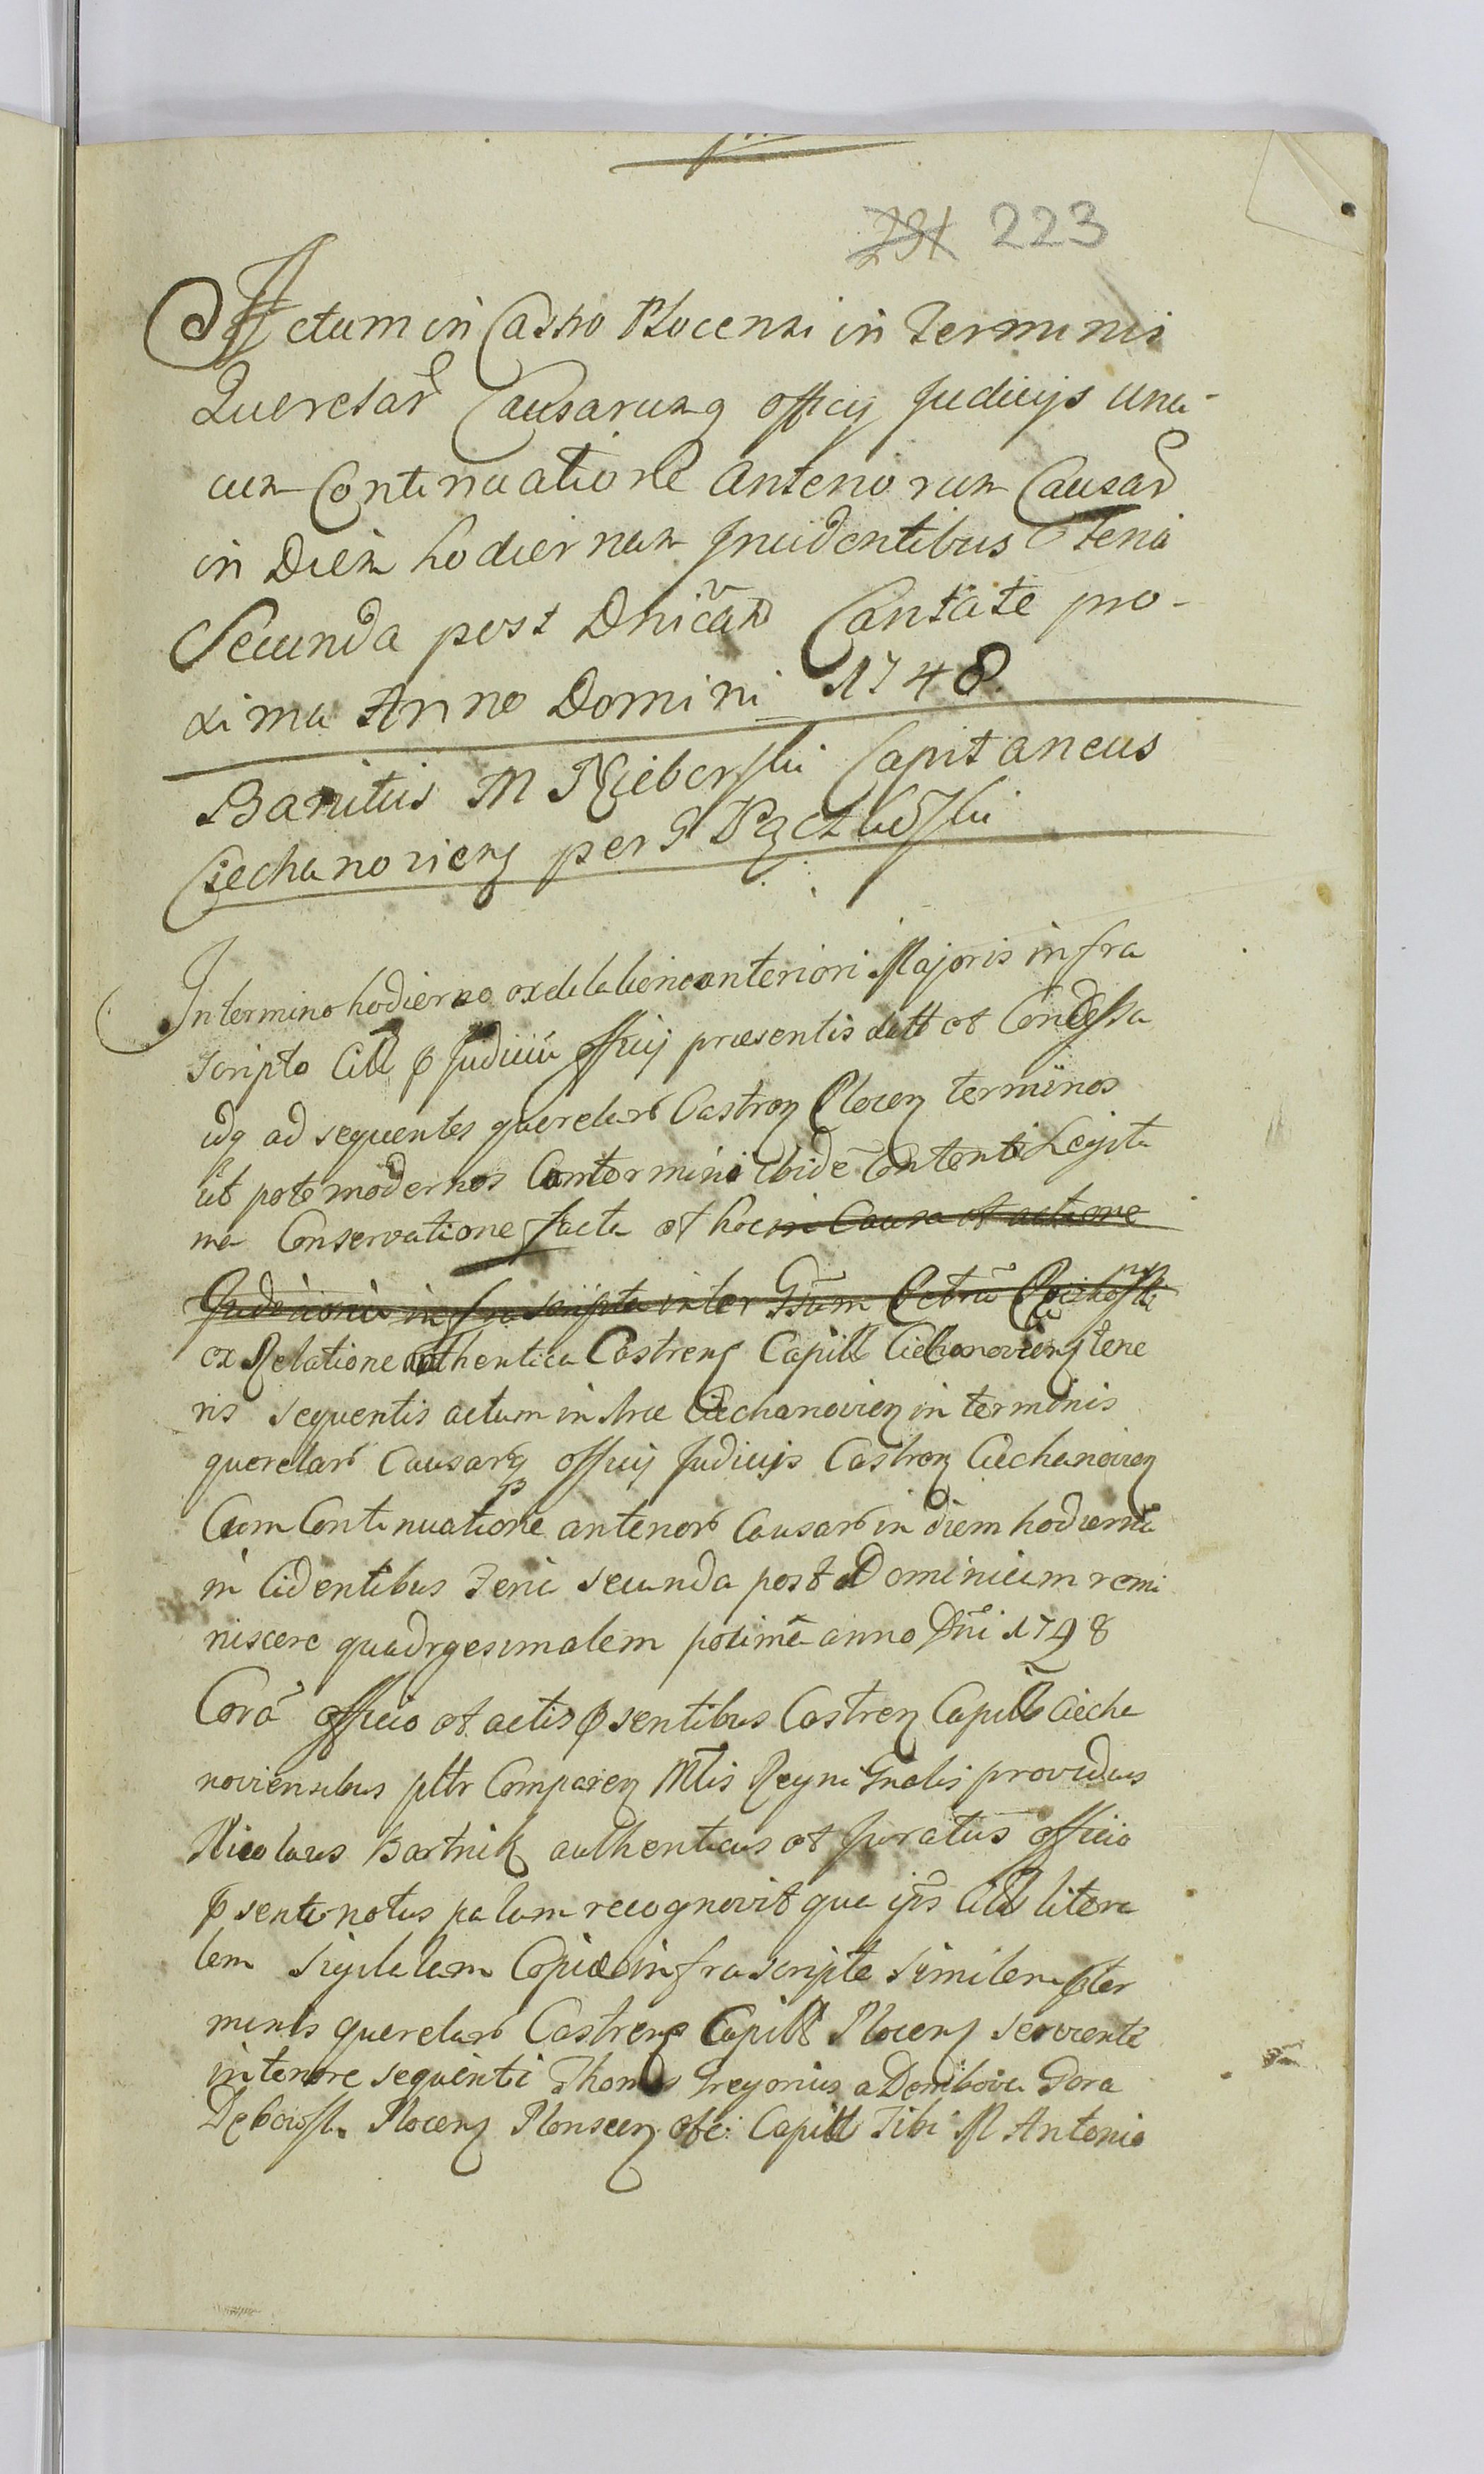 231 223
Actum in Castro Plocensi in Terminis
Querelar Causarumq officij Judicijs una
cum Continuatione anteriorum Causar
in Diem hodiernam Incidentibus Feria
Secunda post Dnicam Cantate pro-
xima Anno Domini 1748.
Banitus M Capitaneus
Ciechanovien per G
In termino hodierno ex dilatione anteriori Majoris infra
scripto Citt p Judiciu officij praesentis datt et Concessa
idq ad sequentes querelar Castren Plocen terminos
ut pote modernos Cum termini ibide Contenti Legitt
ma Conservatione facta et hoc in Causa et actione
Judiciaria infrascripta inter Gsum Petru
ex Relatione authentica Castren Capitt Ciechanovien tene
ris sequentis actum in Arce Ciechanovien in terminis
querelar Causarq officij Judicijs Castren Ciechanovien
Cum Continuatione anterior Causar in diem hodierna
in Cidentibus Feria secunda post Dominicam remi
niscere quadrgesimalem poximè anno Dni 1748
Corà officio et actis psentibus Castren Capitt Ciecha
noviensibus pltr Comparen Mtis Regni Gnalis providus
Nicolaus Bartnik authenticus et Juratus officio
psenti notus palam recognovit qua ijs Citt litera
lem Sigilatam Copiae infrascripta similem pter
minis querelar Castren Capitt Plocen servienti
in tenore sequenti Thomas Gregorius a Dembowa Gora
Dębowski Plocen Plonscen etc: Capitt Tibi M Antonio